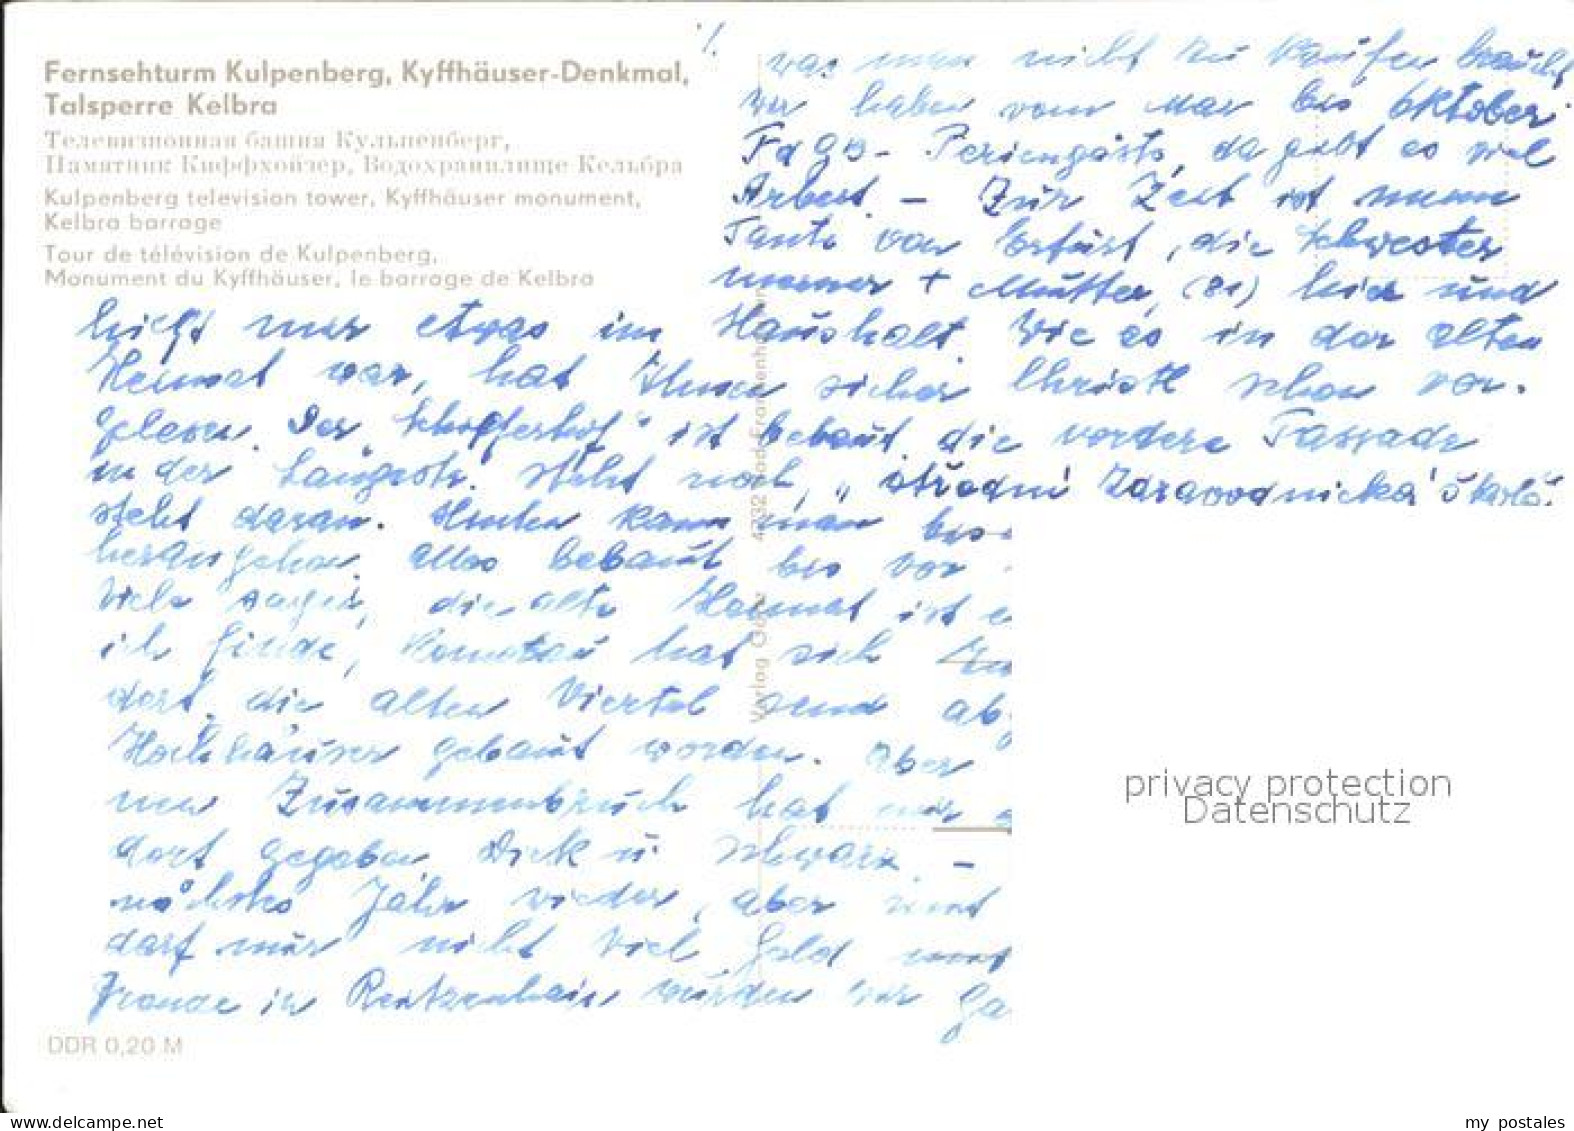 Fernsehturm Kulpenberg, Kyffhäuser-Denkmal,
Talsperre Kelbra
Телевизионная башня Кульпенберг,
Памятник Киффхойзер, Водохранилище Кельбра
Kulpenberg television tower, Kyffhäuser monument,
Kelbra barrage
Tour de télévision de Kulpenberg,
Monument du Kyffhäuser, le barrage de Kelbra
was man nicht zu kaufen braucht
wir haben vom Mai bis Oktober
FdGB- Feriengäste, da gibt es viel
Arbeit. - Zur Zeit ist meine
Tante von Erfurt, die Schwester
meiner + Mutter, (81) hier und
hilft mir etwas im Haushalt. Wie es in der alten
Heimat war, hat Ihnen sicher Christl schon vor-
gelesen. Der "Schofferhof" ist bebaut, die vordere Fassade
in der Langestr. steht noch, " střední Zdravodnická škola"
steht daran. Hinten kann man bis
herangehen. Alles bebaut bis vor
Viele sagen, die alte Heimat ist
ich finde, Komotau hat sich
dort, die alten Viertel sind
Hochhäuser gebaut worden. Aber
Zusammenbruch hat mir
dort gegeben. Dick u. schwarz. -
nächstes Jahr wieder, aber sonst
darf mir nicht viel Geld
Freunde in Reitzenhain würden wir
Verlag 4732 Bad Frankenhausen
DDR 0,20 M
privacy protection
Datenschutz
Delcampe.net
my_postales